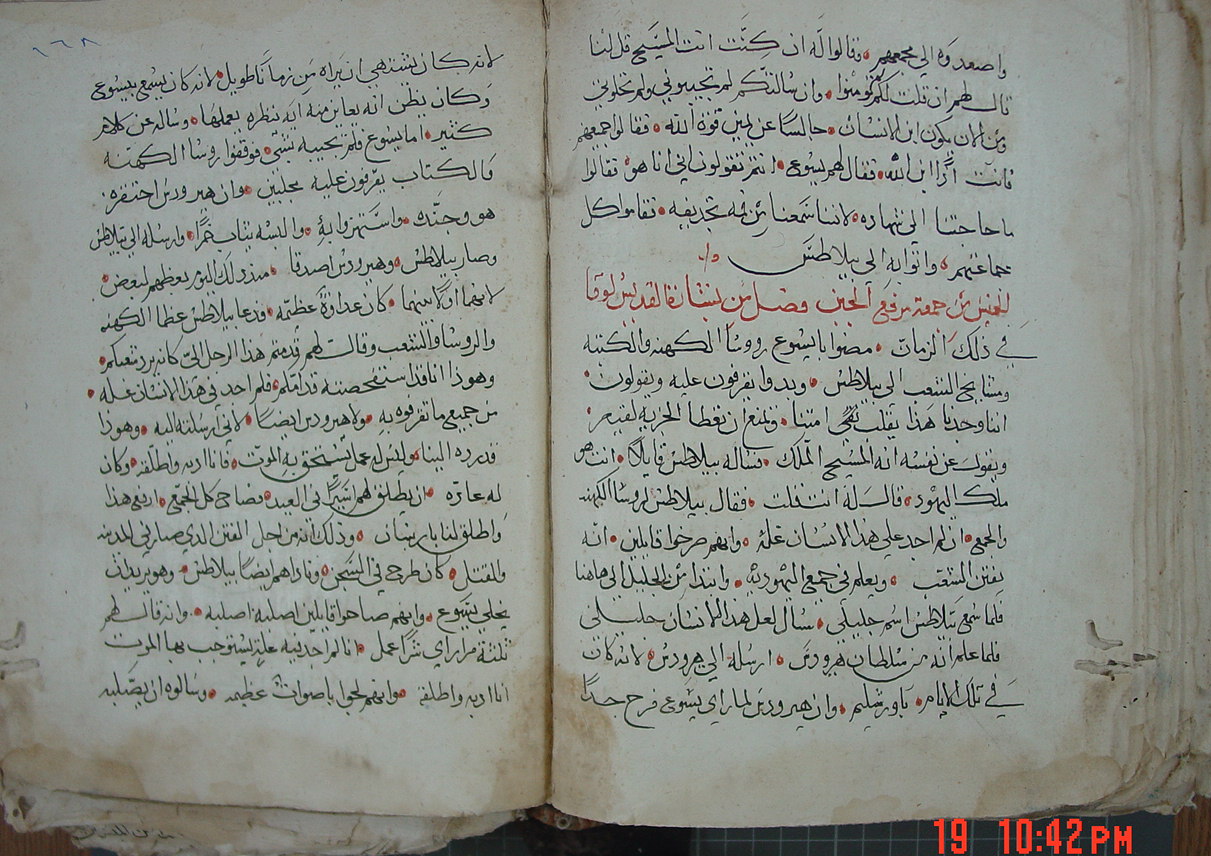 واصعدوه الي مجمعهم • وقالوا له ان كنت انت المسيح قل لنا
قال لهم ان قلت لكم لم تومنوا • وان سالتكم لم تجيبوني ولم تخلوني
ومن الان يكون ابن الانسان • جالسا عن يمين قوة الله • فقالوا جميعهم
فانت اذا ابن الله • فقال لهم يسوع • انتم تقولون اني انا هو • فقالوا
ما حاجتنا الي شهاده • لاننا سمعنا من فمه تجديفه • فقاموا كل
جماعتهم • واتوا به الي بيلاطس
الخميس من جمعة مرفع الجبن فصل من بشارة القديس لوقا
في ذلك الزمان • مضوا بايسوع رووسا الكهنه والكتبه
ومشايخ الشعب الي بيلاطس • وبدوا يقرفون عليه ويقولون •
اننا وجدنا هذا يقلب امتنا • ويمنع ان تعطا الجزيه لقيصر •
ويقول عن نفسه انه المسيح الملك • فساله بيلاطس قايلا • انت هو
ملك اليهود • قال له انت قلت • فقال بيلاطس لروسا الكهنه
والجمع • ان لم اجد علي هذا الانسان علة • وانهم صرخوا قايلين • انه
يفتن الشعب • ويعلم في جميع اليهوديه • وابتدا من الجليل الي هاهنا
فلما سمع بيلاطس اسم جليلي • سال لعل هذا الانسان جليلي
فلما علم انه من سلطان هيرودس • ارسله الي هيرودس • لانه كان
في تلك الايام • باورشليم • وان هيرودس لما راي يسوع فرح جدا
١٦٨
لانه كان يشتهي ان يراه من زمانا طويل • لانه كان يسمع بيسوع
وكان يظن انه يعاين منه ايه ينظره يعملها • وساله عن كلام
كثير • اما يسوع فلم يجيبه بشي • فوقفوا روسا الكهنه
والكتاب يقرفون عليه بجلبين • وان هيرودس احتقره •
هو وجنده • واستهزوا به • والبسه ثياب حمرا • وارسله الي بيلاطس
وصار بيلاطس • وهيرودس اصدقا • منذ ذلك اليوم بعضهم لبعض •
لانهما اولا بينهما • كان عداوة عظيمه • فدعا بيلاطس عظما الكهنه
والروسا والشعب وقال لهم قدمتم هذا الرجل الي كانه يرد شعبكم •
وهوذا انا قد استفحصته قدامكم • فلم اجد في هذا الانسان عله •
من جميع ما تقرفوه به • ولا هيرودس ايضا • لاني ارسلته اليه • وهوذا
قد رده الينا • وليس له عمل يستحق به الموت • فانا اادبه واطلقه • وكان
له عاده • ان يطلق لهم اسيرا في العيد • فصاحي كل الجمع • ارفع هذا
واطلق لنا باربنان • وذلك انه من اجل الفتن الذي صار في المدينه
والقتل • كان طرح في السجن • وناداهم ايضا بيلاطس • وهو يريد ان
يخلي يسوع • وانهم صاحوا قايلين اصلبه اصلبه • وانه قال لهم
ثلثة مرار اي شرا عمل • انا لم اجد فيه علة يستوجب بها الموت
انا اادبه واطلقه • وانهم لجوا باصوات عظيمه • وسالوه ان يصلبه
19 10:42 PM